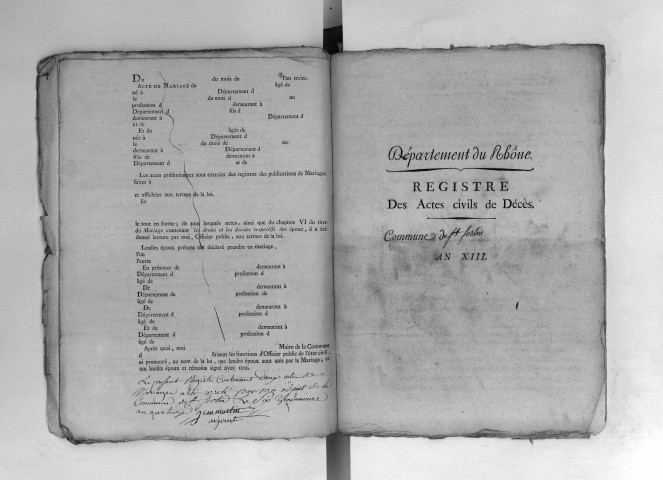 Du du mois de l'an treize.
ACTE DE MARIAGE de âgé de
né à Département d
le du mois d an
profession d demeurant à
Département d fils d
demeurant à Département d
et de
Et de âgée de
née à Département d
le du mois de an
demeurant à Département d
fille de demeurant à
Département d et de
Les actes préliminaires sont extraits des registres des publications de Mariages
faites à
et affichées aux termes de la loi.
Et
le tout en forme ; de tous lesquels actes, ainsi que du chapitre VI du titre
du Mariage contenant les droits et les devoirs respectifs des époux, il a été
donné lecture par moi, Officier public, aux termes de la loi.
Lesdits époux présens ont déclaré prendre en mariage,
l'un
l'autre
En présence de demeurant à
Département d profession d
âgé de
De demeurant à
Département de profession de
âgé de
De demeurant à
Département d profession d
âgé de
Et de demeurant à
Département d profession d
âgé de
Après quoi, moi Maire de la Commune
d faisant les fonctions d'Officier public de l'état civil,
ai prononcé, au nom de la loi, que lesdits époux sont unis par le Mariage, et
ont lesdits époux et témoins signé avec moi.
Le present Registre Contenant deux actes de
Mariages a été arreté par moi adjoint de la
Commune de st fortin Le Vendemiaire
an quatorze jean martin
adjoint
Département du Rhône.
REGISTRE
Des Actes civils de Décès.
Commune d de st fortin
AN XIII.